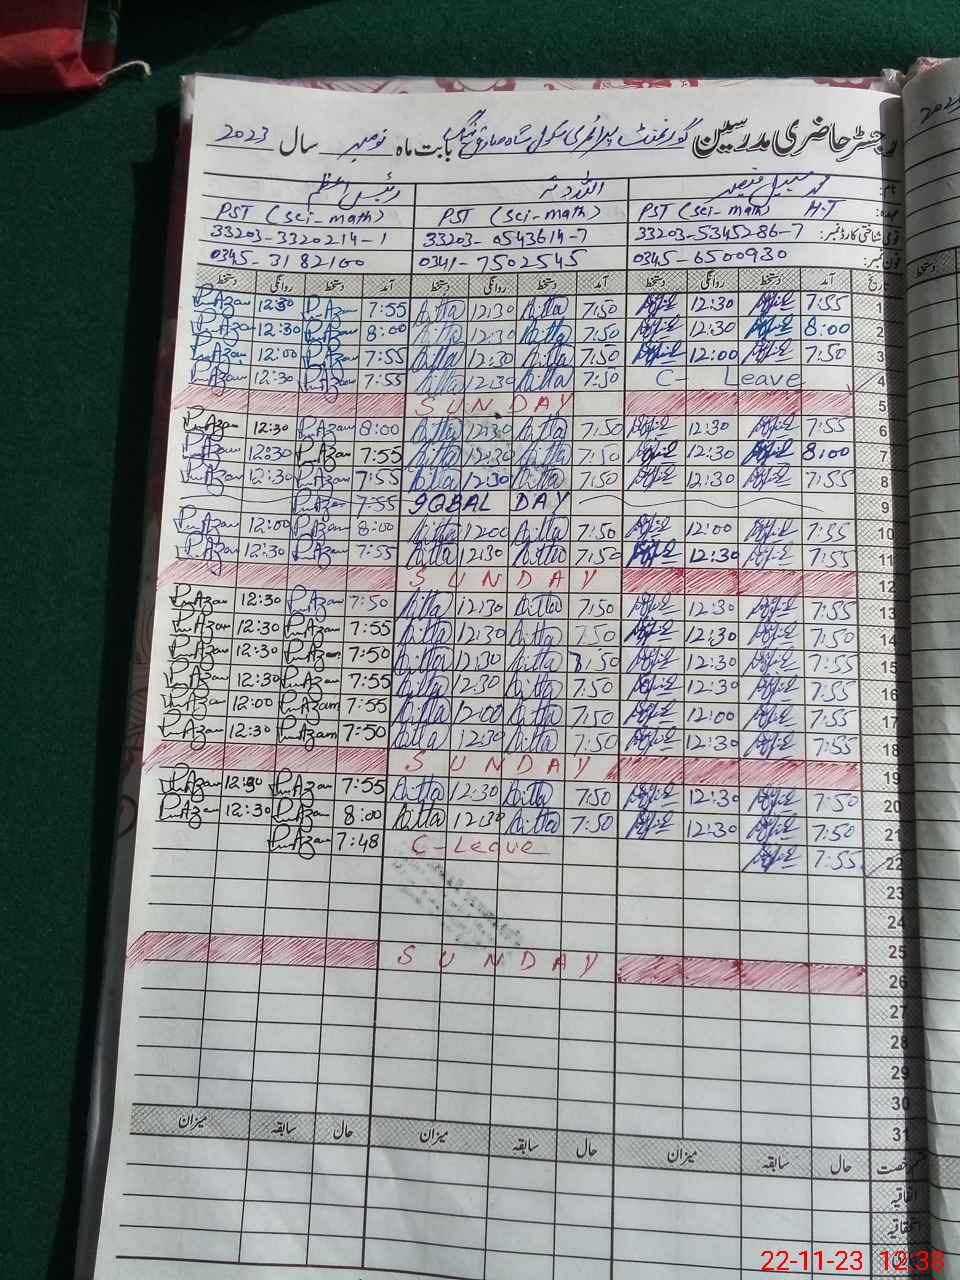 رجسٹر حاضری مدرسین گورنمنٹ پرائمری سکول شاہ صادق نہنگ بابت ماہ نومبر سال 2023
نام: محمد اللہ دتہ رئیس اعظم
عہدہ: PST (Sci-math) H.T PST (Sci-math) PST (Sci-math)
قومی شناختی کارڈ نمبر: 33203-5345286-7 33203-0543614-7 33203-3320214-1
فون نمبر: 0345-6500930 0341-7502545 0345-3182100
تاریخ آمد دستخط روانگی دستخط آمد دستخط روانگی دستخط آمد دستخط روانگی دستخط
1 7:55 12:30 7:50 Ditta 12:30 Ditta 7:55 Azam 12:30 Azam
2 8:00 12:30 7:50 Ditta 12:30 Ditta 8:00 Azam 12:30 Azam
3 7:50 12:00 7:50 Ditta 12:30 Ditta 7:55 Azam 12:00 Azam
4 C- Leave 7:50 Ditta 12:30 Ditta 7:55 Azam 12:30 Azam
5 SUNDAY
6 7:55 12:30 7:50 Ditta 12:30 Ditta 8:00 Azam 12:30 Azam
7 8:00 12:30 7:50 Ditta 12:30 Ditta 7:55 Azam 12:30 Azam
8 7:55 12:30 7:50 Ditta 12:30 Ditta 7:55 Azam 12:30 Azam
9 IQBAL DAY 7:55 Azam
10 7:55 12:00 7:50 Ditta 12:00 Ditta 8:00 Azam 12:00 Azam
11 7:55 12:30 7:50 Ditta 12:30 Ditta 7:55 Azam 12:30 Azam
12 SUNDAY
13 7:55 12:30 7:50 Ditta 12:30 Ditta 7:50 Azam 12:30 Azam
14 7:50 12:30 7:50 Ditta 12:30 Ditta 7:55 Azam 12:30 Azam
15 7:55 12:30 Ditta 12:30 Ditta 7:50 Azam 12:30 Azam
16 7:55 12:30 7:50 Ditta 12:30 Ditta 7:55 Azam 12:30 Azam
17 7:55 12:00 7:50 Ditta 12:00 Ditta 7:55 Azam 12:00 Azam
18 7:55 12:30 7:50 Ditta 12:30 Ditta 7:50 Azam 12:30 Azam
19 SUNDAY
20 7:50 12:30 7:50 Ditta 12:30 Ditta 7:55 Azam 12:30 Azam
21 7:50 12:30 7:50 Ditta 12:30 Ditta 8:00 Azam 12:30 Azam
22 7:55 C-Leave 7:48 Azam
23
24
25
26 SUNDAY
27
28
29
30
31
حال سابقہ میزان حال سابقہ میزان حال سابقہ میزان
اتفاقیہ
استحقاقیہ
22-11-23 12:38